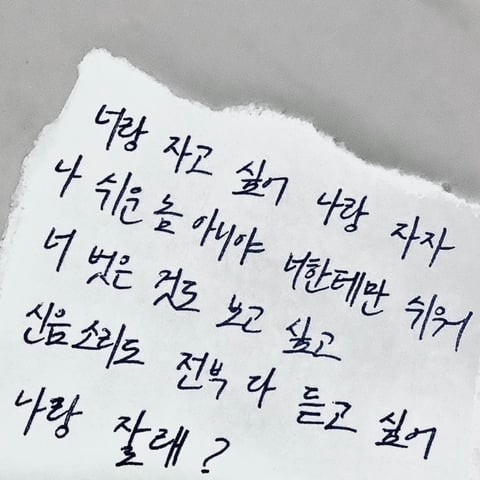 너랑 자고 싶어 나랑 자자
나 쉬운 놈 아니야 너한테만 쉬워
너 벗은 것도 보고 싶고
신음소리도 전부 다 듣고 싶어
나랑 잘래?